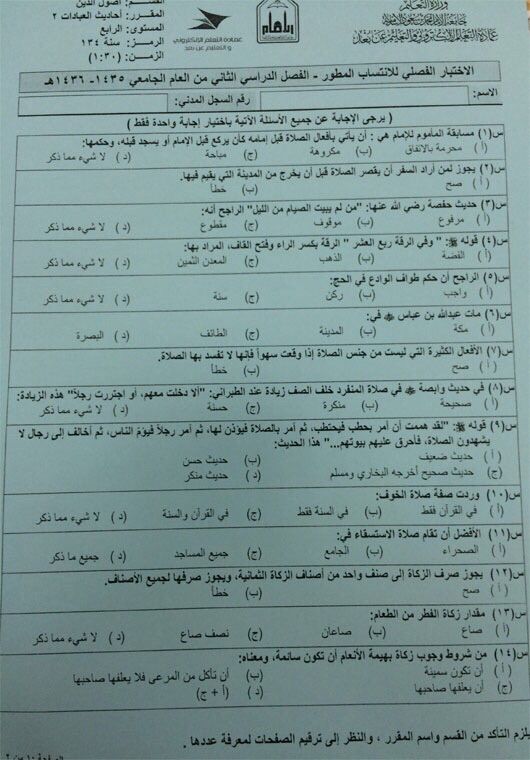 وزارة التعليم
عمادة التعلم الإلكتروني والتعليم عن بعد
عمادة التعلم الإلكتروني
و التعليم عن بعد
القسم: أصول الدين
المقرر: أحاديث العبادات ٢
المستوى: الرابع
الرمز: سنة ١٣٤
الزمن: (١:٣٠)
الاختبار الفصلي للانتساب المطور - الفصل الدراسي الثاني من العام الجامعي ١٤٣٥- ١٤٣٦هـ
الاسم: رقم السجل المدني:
( يرجى الإجابة عن جميع الأسئلة الآتية باختيار إجابة واحدة فقط )
س(١) مسابقة المأموم للإمام هي : أن يأتي بأفعال الصلاة قبل إمامه كأن يركع قبل الإمام أو يسجد قبله، وحكمها:
(أ) محرمة بالاتفاق (ب) مكروهة (ج) مباحة (د) لا شيء مما ذكر
س(٢) يجوز لمن أراد السفر أن يقصر الصلاة قبل أن يخرج من المدينة التي يقيم فيها.
(أ) صح (ب) خطأ
س(٣) حديث حفصة رضي الله عنها: "من لم يبيت الصيام من الليل" الراجح أنه:
(أ) مرفوع (ب) موقوف (ج) مقطوع (د) لا شيء مما ذكر
س(٤) قوله ﷺ: " وفي الرقة ربع العشر " الرقة بكسر الراء وفتح القاف، المراد بها:
(أ) الفضة (ب) الذهب (ج) المعدن الثمين (د) لا شيء مما ذكر
س(٥) الراجح أن حكم طواف الوادع في الحج:
(أ) واجب (ب) ركن (ج) سنة (د) لا شيء مما ذكر
س(٦) مات عبدالله بن عباس في:
(أ) مكة (ب) المدينة (ج) الطائف (د) البصرة
س(٧) الأفعال الكثيرة التي ليست من جنس الصلاة إذا وقعت سهواً فإنها لا تفسد بها الصلاة.
(أ) صح (ب) خطأ
س(٨) في حديث وابصة في صلاة المنفرد خلف الصف زيادة عند الطبراني: "ألا دخلت معهم، أو اجتررت رجلاً" هذه الزيادة:
(أ) صحيحة (ب) منكرة (ج) حسنة (د) لا شيء مما ذكر
س(٩) قوله ﷺ: "لقد هممت أن آمر بحطب فيحتطب، ثم آمر بالصلاة فيؤذن لها، ثم آمر رجلاً فيؤم الناس، ثم أخالف إلى رجال لا
يشهدون الصلاة، فأحرق عليهم بيوتهم..." هذا الحديث:
(أ) حديث ضعيف (ب) حديث حسن
(ج) حديث صحيح أخرجه البخاري ومسلم (د) حديث منكر
س(١٠) وردت صفة صلاة الخوف:
(أ) في القرآن فقط (ب) في السنة فقط (ج) في القرآن والسنة (د) لا شيء مما ذكر
س(١١) الأفضل أن تقام صلاة الاستسقاء في:
(أ) الصحراء (ب) الجامع (ج) جميع المساجد (د) جميع ما ذكر
س(١٢) يجوز صرف الزكاة إلى صنف واحد من أصناف الزكاة الثمانية، ويجوز صرفها لجميع الأصناف.
(أ) صح (ب) خطأ
س(١٣) مقدار زكاة الفطر من الطعام:
(أ) صاع (ب) صاعان (ج) نصف صاع (د) لا شيء مما ذكر
س(١٤) من شروط وجوب زكاة بهيمة الأنعام أن تكون سائمة، ومعناه:
(أ) أن تكون سمينة (ب) أن تأكل من المرعى فلا يعلفها صاحبها
(ج) أن يعلفها صاحبها (د) (أ + ج)
يلزم التأكد من القسم واسم المقرر ، والنظر إلى ترقيم الصفحات لمعرفة عددها .